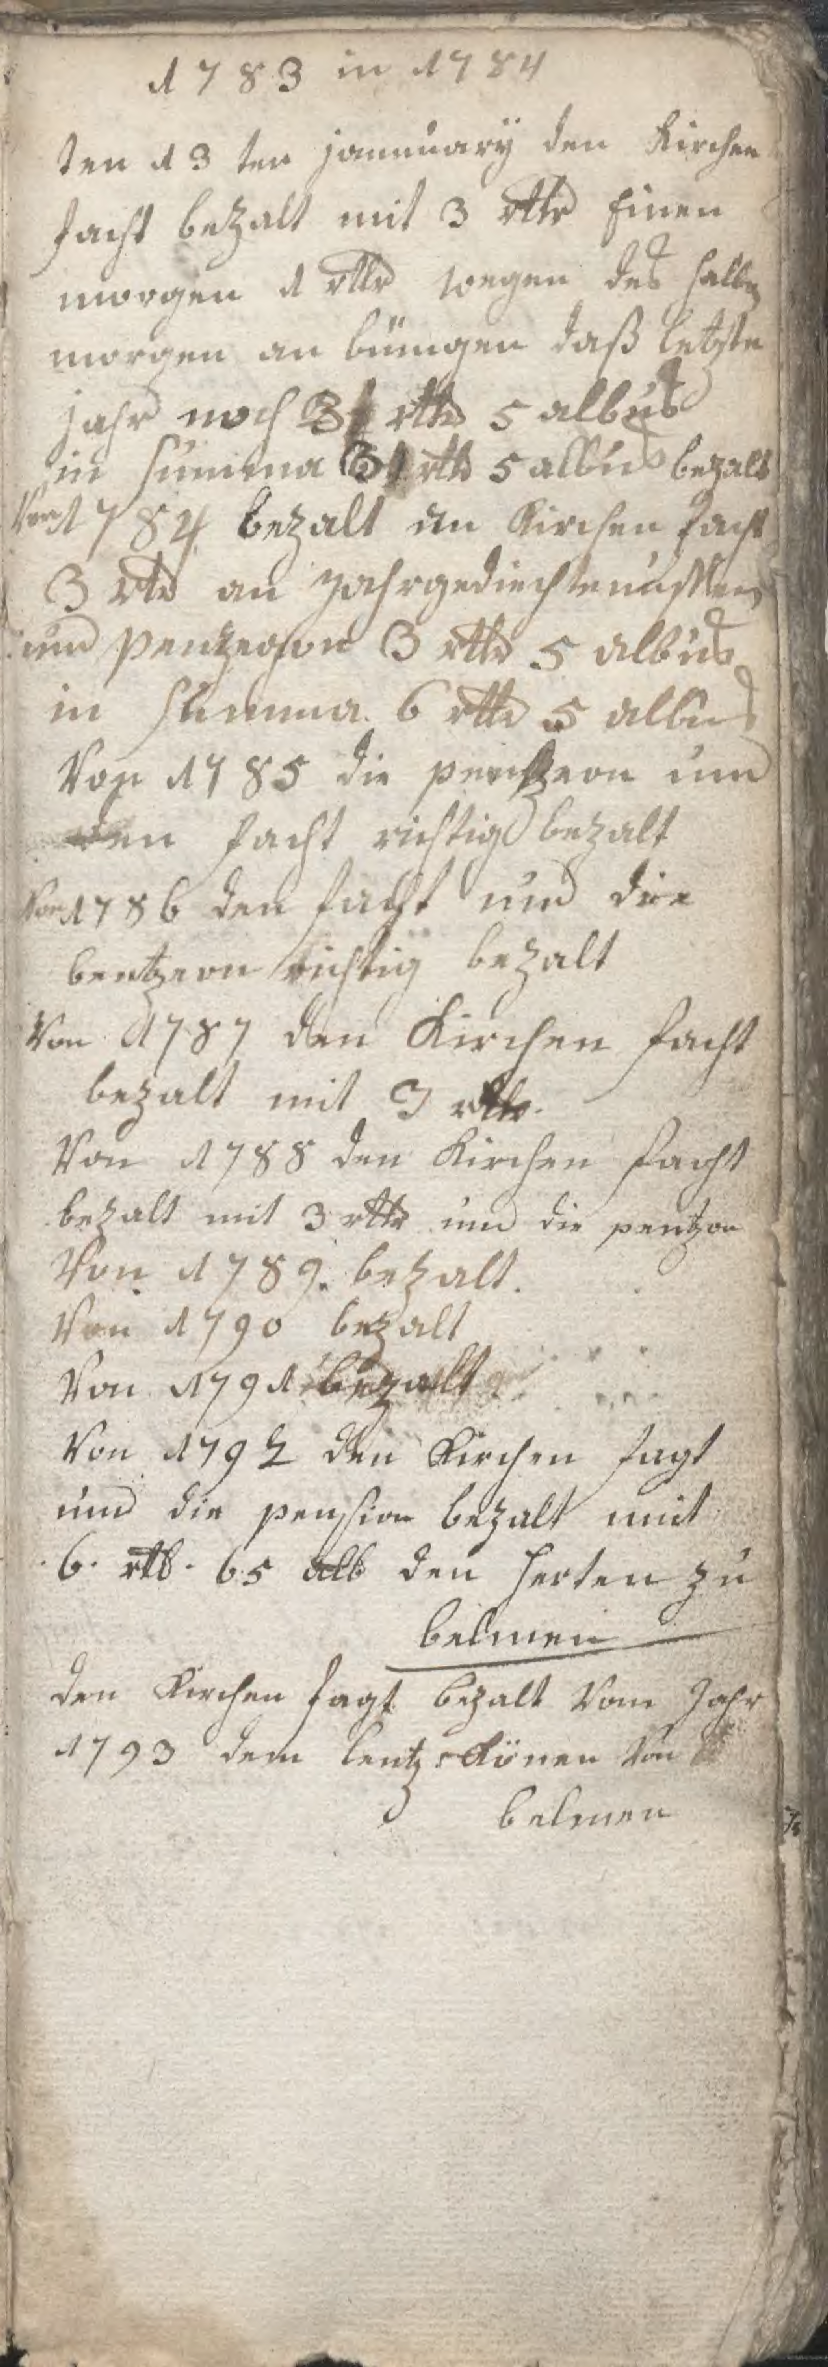 1783 in 1784
den 13ten jannuarÿ den Kirchen
facht bezalt mit 3 rtlr Einen
morgen 1 rtlr wegen des halben
morgen an büngen daß letzte
jahr noch 31 rtlr 5 albus
in summa 31 rtlr 5 albus bezalt
Von 1784 bezalt an Kirchen facht
3 rtlr an
und penzeyon 3 rtlr 5 albus
in summa 6 rtlr 5 albus
Von 1785 die penzeon und
den facht richtig bezalt
Von 1786 den facht und die
bentzeon richtig bezalt
Von 1787 den Kirchen facht
bezalt mit 3 rtlr.
Von 1788 den Kirchen facht
bezalt mit 3 rtlr und die pentzon
Von 1789. bezalt.
Von 1790 bezalt
Von 1791 bezalt
Von 1792 den Kirchen fagt
und die pension bezalt mit
6. rtl. 65 alb den herten zu
belmen
den Kirchen fagt bezalt vom Jahr
1793 dem lentz Könen von
belmen